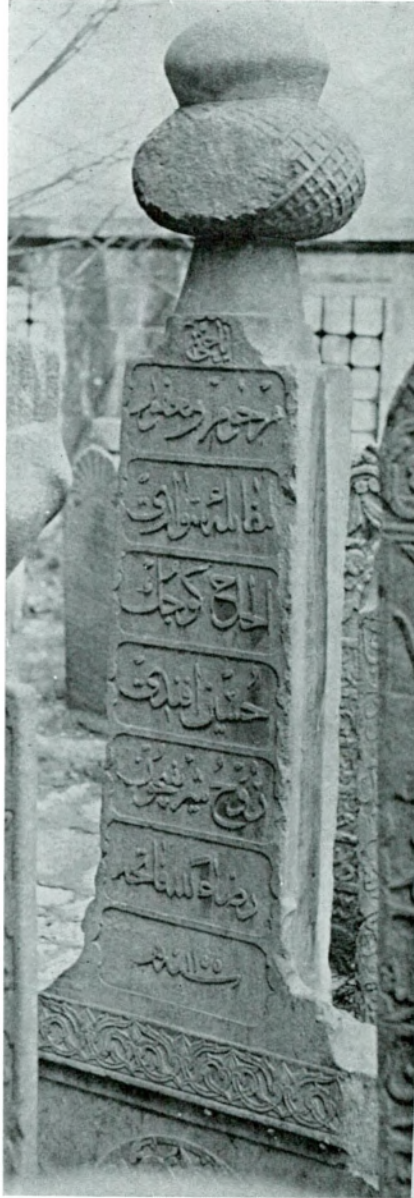 هو الباقی
مرحوم و مغفور
مقابله سواری
الحاج کوچك
حسین افندی
روح شریفیچون
رضاء لله الفاتحه
سنه ۱۱۰۵